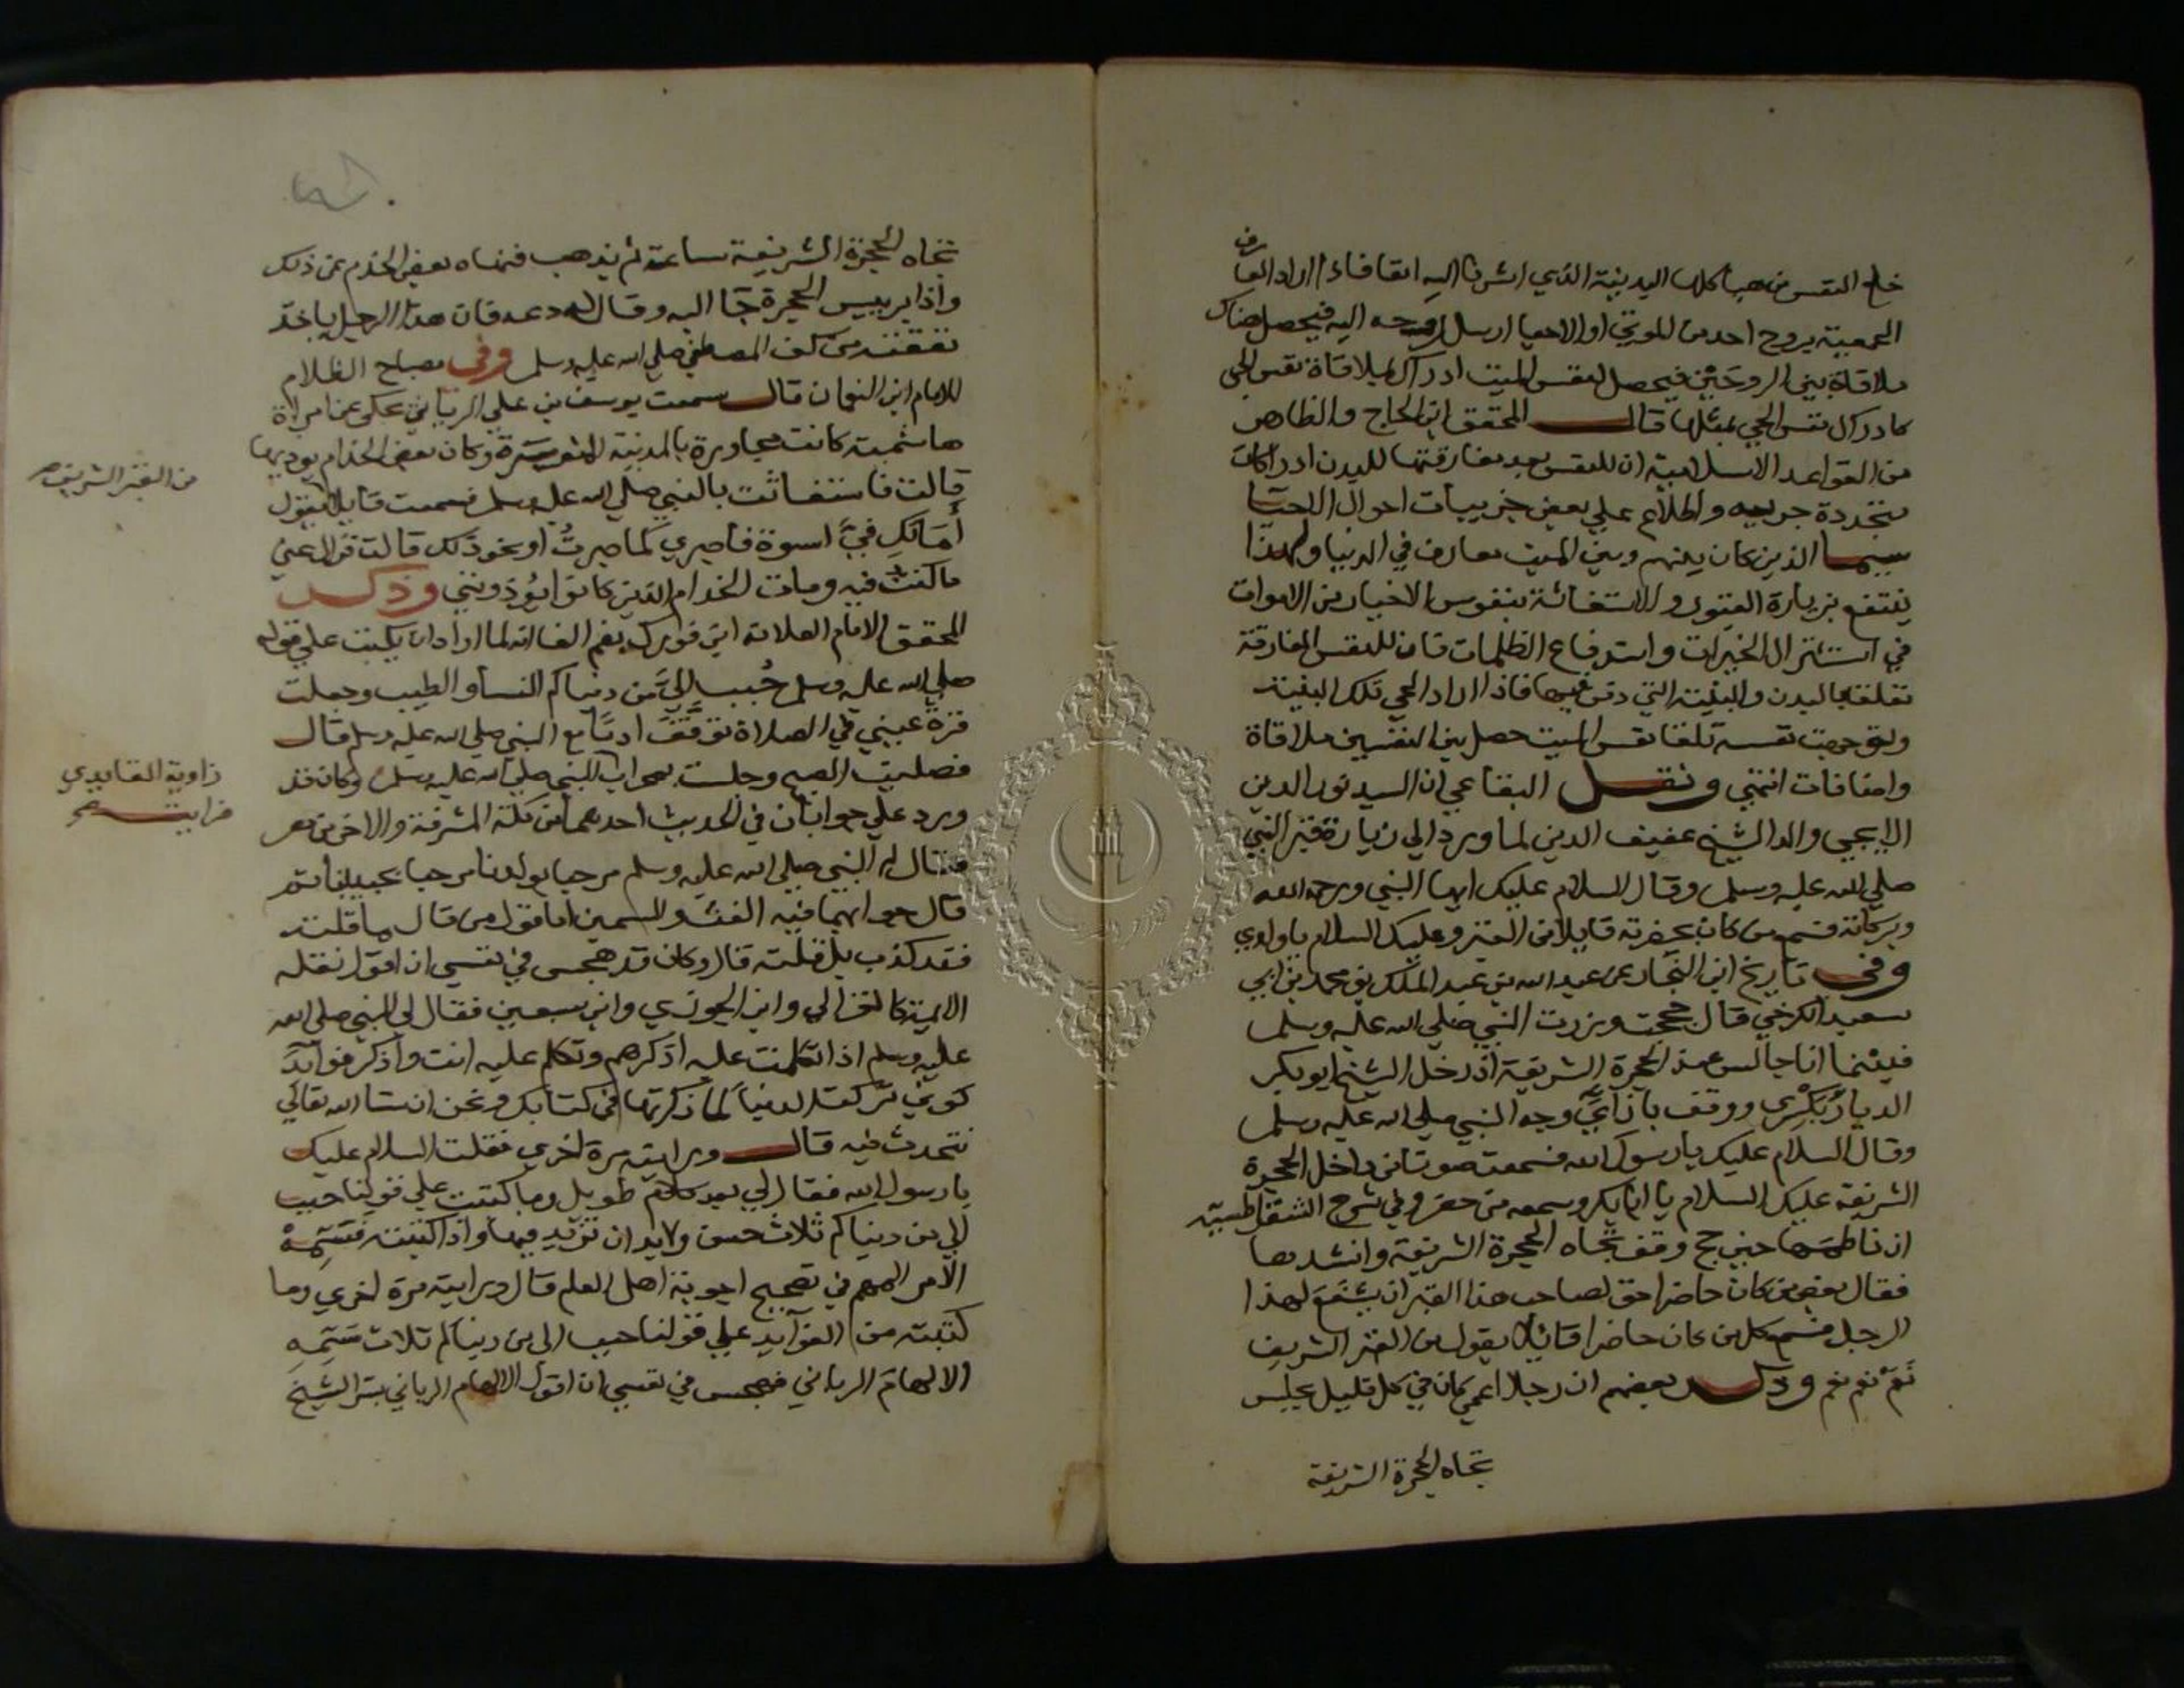 خلع النفس من هياكلها البدنية الذي اشرنا اليه انفا فاذا اراد العارف
الجمعية بروح احد من الموتي او الاحيا ارسل روحه اليه فيحصل هناك
ملاقاة بين الروحَيْن فيحصل لنفس الميت ادراك لملاقاة نفس الحي
كادراك نفس الحي لمثلها قال المحقق ابن الحاج والظاهر
من القواعد الاسلامية ان للنفس بعد مفارقتها للبدن ادراكات
متجددة جزييه واطلاع علي بعض جزييات احوال الاحيا
سيما الذين كان بينهم وبين الميت تعارف في الدنيا ولهذا
ينتفع بزيارة القبور والاستغاثة بنفوس الاخيار من الاموات
في استنزال الخيرات واستدفاع الظلمات فان للنفس المفارقة
تعلقا بالبدن والبقعة التي دفن فيها فاذا اراد الحي تلك البقعة
وتوجهت نفسه تلقا نفس الميت حصل بين النفسين ملاقاة
واضافات انتهي ونقل البقاعي ان السيد نور الدين
الايجي والد الشيخ عفيف الدين لما ورد الي زيارة قبر النبي
صلي الله عليه وسلم وقال السلام عليك ايها النبي ورحمة الله
وبركاته فسمع من كان بحضرته قايلا من القبر وعليك السلام يا ولدي
وفي تاريخ ابن النجار عن عبد الله بن عبد الملك بن محمد بن ابي
سعيد الكرخي قال حججت وزرت النبي صلي الله عليه وسلم
فبينما انا جالس عند الحجرة الشريفة اذ دخل الشيخ ابو بكر
الديارُبَكْرِي ووقف بازاءِ وجه النبي صلي الله عليه وسلم
وقال السلام عليك يا رسول الله فسمعت صوتا من داخل الحجرة
الشريفة عليك السلام يا ابا بكر وسمعه من حضر وفي شرح الشقراطسية
ان ناظمها حين حج وقف تجاه الحجرة الشريفة وانشدها
فقال بعض من كان حاضرا حق لصاحب هذا القبر ان يشفع لهذا
الرجل فسمع كل من كان حاضرا قائلا يقول من القبر الشريف
نَعَمْ نعم نعم وذكر بعضهم ان رجلا اعمي كان في كل قليل يجلس
تجاه الحجرة الشريفة
تجاه الحجرة الشريفة ساعة ثم يذهب فنهاه بعض الخدم عن ذلك
واذا برييس الحجرة جا اليه وقال له دعه فان هذا الرجل ياخذ
نفقته من كف المصطفي صلي الله عليه وسلم وفي مصباح الظلام
للامام ابن النعمان قال سمعت يوسف بن علي الزناتي يحكي عن امراة
هاشمية كانت مجاورة بالمدينة المنورة وكان بعض الخدام يوذيها
قالت فاستغاثت بالنبي صلي الله عليه وسلم فسمعت قايلا يقول
من القبر الشريف صح
أَمَالَكِ فيَّ اسوة فاصبري كما صبرتُ او نحو ذلك قالت فزال عني
ما كنت فيه ومات الخدام الذين كانوا يُؤذونني وذكر
المحقق الامام العلامة ابن فورك بضم الفا انه لما اراد ان يكتب علي قوله
صلي الله عليه وسلم حُبب اليَّ من دنياكم النسأ والطيب وجعلت
قرة عيني في الصلاة توقَّفَ ادبًا مع النبي صلي الله عليه وسلم قال
فصليت الصبح وجلست بمحراب النبي صلي الله عليه وسلم وكان قد
زاوية القايدي
فرايته صح
ورد علي جوابان في الحديث احدهما من مكة المشرفة والاخر من مصر
فقال لي النبي صلي الله عليه وسلم مرحبا بولدنا مرحبا بحبيبنا ثم
قال جوابهما فيه الغث والسمين اما قول من قال ما قلته
فقد كذب بل قلته قال وكان قد هجس في نفسي ان اقول نقله
الايمة كالغزالي وابن الجوزي وابن سبعين فقال لي النبي صلي الله
عليه وسلم اذا تكلمت عليه اذكرهم وتكلم عليه انت واذكر فوائد
كوني تركت الدنيا كما ذكرتها في كتابك ونحن ان شا الله تعالي
نتحدث فيه قال ورايته مرة اخري فقلت السلام عليك
يا رسول الله فقال لي بعد كلام طويل وما كتبت علي قولنا حبب
الي من دنياكم ثلاث حسن ولا بد ان تزيد فيها واذا كتبته فَسَمِّهْ
الامر المهم في تصحيح اجوبة اهل العلم قال ورايته مرة اخري وما
كتبته من الفوايد علي قولنا حبب الي من دنياكم ثلاث سَمِّهِ
الالهام الرباني فهجس في نفسي ان اقول الالهام الرباني بسر الشيخ